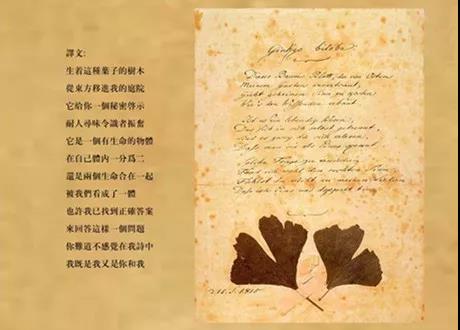 譯文:
生着這種葉子的樹木
從東方移進我的庭院
它給你一個秘密啓示
耐人尋味令識者振奮
它是一個有生命的物體
在自己體內一分爲二
還是兩個生命合在一起
被我們看成了一體
也許我已找到正確答案
來回答這樣一個問題
你難道不感覺在我詩中
我既是我又是你和我
Ginkgo biloba
Dieses Baums Blatt, der von Osten
Meinem Garten anvertraut,
Giebt geheimen Sinn zu kosten
Wie's den Wissenden erbaut.
Ist es Ein lebendig Wesen,
Das sich in sich selbst getrennt,
Sind es zwey die sich erlesen,
Dass man sie als Eines kennt.
Solche Frage zu erwiedern
Fand ich wohl den rechten Sinn,
Fühlst du nicht an meinen Liedern
Dass ich Eins und doppelt bin.